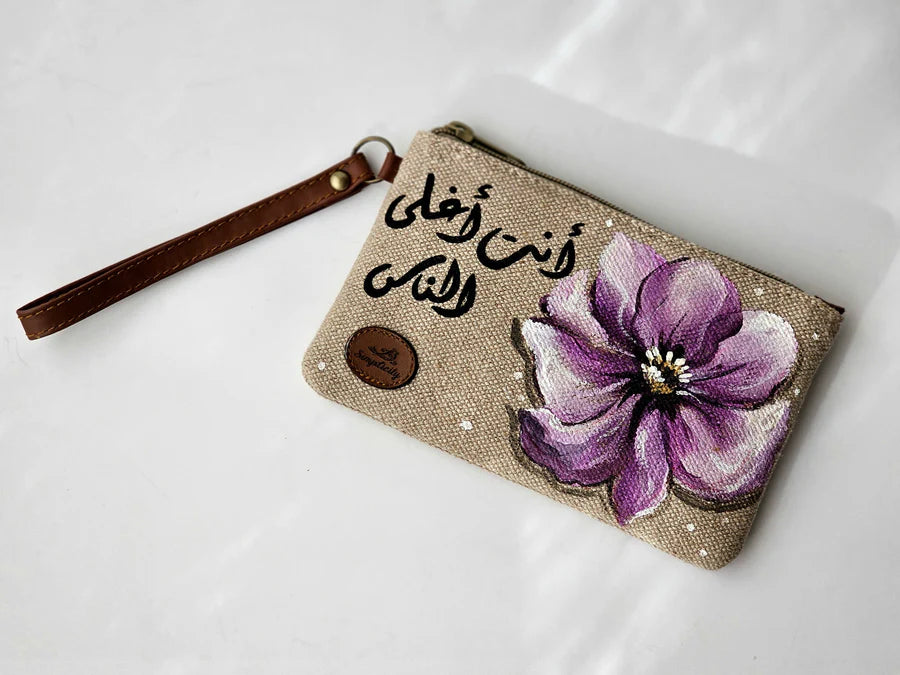 أنت أغلى
الناس
Simplicity